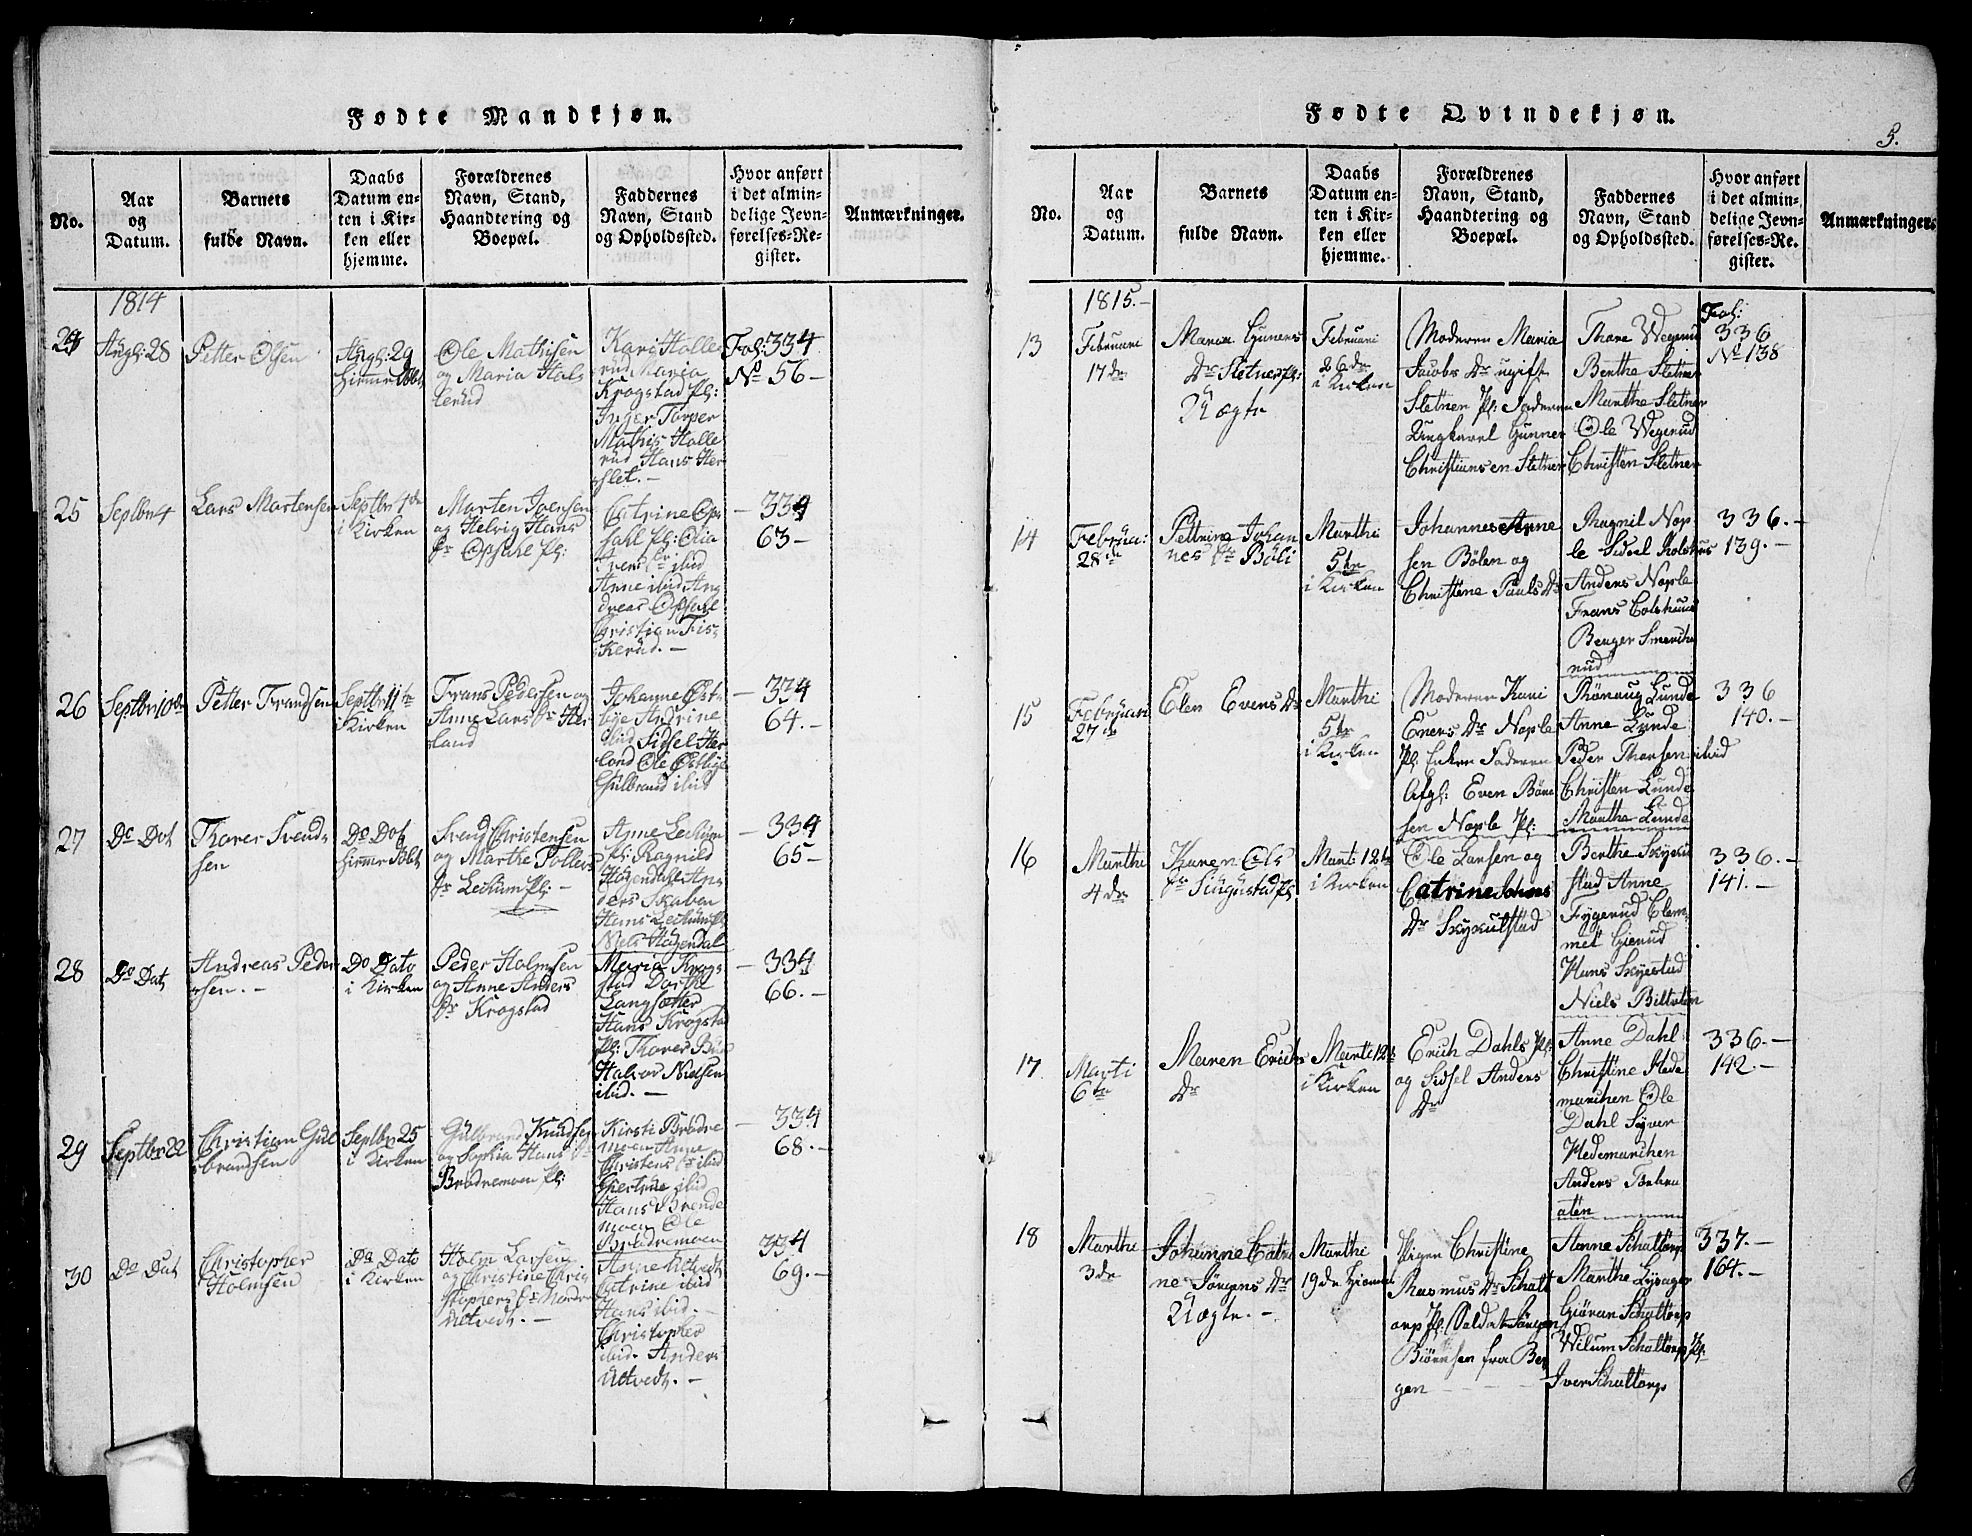 Fødte Mandkjøn.
No.
Aar
og
Datum.
Barnets
fulde Navn.
Daabs
Datum en-
ten i Kir-
ken eller
hjemme.
Forældrenes
Navn, Stand,
Haandtering og
Boepæl.
Faddernes
Navn, Stand
og Opholdssted.
Hvor anført
i det almin-
delige Jevn-
førelses-Re-
gister.
Anmærkninger.
1814
24
Augl: 28
Petter Olsen
Augl: 29
Ole Mathisen
og Maria Hal-
lerud
Kari Halle
rud Maria
Krogstad pl:
Inger Torper
Mathis Halle
rud Hans Her
slet. –
Fol: 334
No 56 –
25
Septbr 4
Lars Martensen
Septbr 4de
i Kirken
Marten Joensen
og Helvig Hans
Dr Opsahl pl:
Catrine Op
sahl pl: Olia
Svends Dr ibid
Anne ibid, An
dreas Opsahl
Christian Fis
kerud. –
– 334
63 –
26
Septbr 10de
Petter Frandsen
Septbr 11te
i Kirken
Frans Pedersen og
Anne Lars Dr Her
land
Johanne Øst
bye Andrine
ibid Sidsel Her
land Ole Østbye
Gulbrand ibid
– 334
64. –
27
Do Dot
Thorer Svend-
sen
Do Dot
Svend Christensen
og Marthe Pollers
Dr Leckum pl: –
Anne Leckum
pl: Ragnild
Hagendal An
ders Skaben
Hans Leckum pl:
Niels Hagendal
– 334
65 –
28
Do Dat
Andreas Peder
sen. –
Do Dato
i Kirken
Peder Holmsen
og Anne Anders
Dr Krogstad
Maria Krog
stad Dorthe
Langsætter
Hans Krogstad
pl: Thorer Bue
Halvor Nielsen
ibid. –
– 334
66. –
29
Septbr 22
Christian Gul
brandsen
Septbr 25
i Kirken
Gulbrand Knudsen
og Sophia Hans Dr
Brødremoen pl:
Kirsti Brødre
moen Anne
Christens Dr ibid
Giertrue ibid
Hans Brende
moen Ole
Brødremoen
– 334
68. –
30
Do Dat
Christopher
Holmsen
Do Dato
i Kirken
Holm Larsen
og Christine Chri
stophers Dr Nordre
Utvedt. –
Anne Utvedt
Catrine ibid
Hans ibid. –
Christopher
ibid. Anders
Utvedt. –
334
69. –
Fødte Qvindekjøn.
5.
No.
Aar
og
Datum.
Barnets
fulde Navn.
Daabs
Datum en-
ten i Kir-
ken eller
hjemme.
Forældrenes
Navn, Stand,
Haandtering og
Boepæl.
Faddernes
Navn, Stand
og Opholdssted.
Hvor anført
i det almin-
delige Jevn-
førelses-Re-
gister.
Anmærkninger.
1815. –
13
Februari
17de
Maren Guners
Dr Sletner pl:
Uægte
Februari
26de
i Kirken
Moderen Maria
Jacobs Dr ugift
Sletner pl: Faderen
Ungkarel Gunner
Christiansen Sletner
Thore Wegerud
Berthe Sletner
Marthe Sletner
Ole Wegerud
Christen Sletner
Fol:
336
No 138
14
Februa:
28de
Pettrine Johan
nes Dr Böli
Marthi
5te
i Kirken
Johannes Arne
sen Bölen og
Christene Pauls Dr
Ragnil Nop
le Sidsel Kolshus
Anders Nople
Frans Colshuus
Berger Smerthe
nud
336. –
139. –
15
Februari
27de
Elen Evens Dr
Marthi
5te
i Kirken
Moderen Kari
Eners Dr Nople
pl: Enken Faderen
Afgl: Even Böre
sen Nople pl:
Rönnaug Lunde
Anne Lunde
Peder Thorsen ibid
Christen Lunde
Marthe Lunde
336
140. –
16
Marthi
4de
Karen Ols
Dr Siugustad pl:
Marti 12te
i Kirken
Ole Larsen og
Catrine Johans
Dr Skyxutstad
Berthe Skyxu
stad Anne
Fygerud Clem
met Gierud
Hans Skyestad
Niels Biltvten
336. –
141. –
17
Marti
6te
Maren Erichs
Dr
Marti 12te
i Kirken
Erich Dahls pl:
og Sidsel Anders
Dr
Anne Dahl
Christine Hede
marchen Ole
Dahl Syver
Hedemarchen
Anders Torkeu
aten
336. –
142. –
18
Marthe
3de
Johanne Catri
ne Sörgens Dr
Uægte. –
Marthi
19de Hjemme
Pigen Christine
Rasmus Dr Schatt
orp pl: Soldat Sörgen
Biörnsen fra Ber
gen
Anne Schattorp
Marthe Lysager
Giöran Schattorp
Wilum Schattorp pl:
Iver Schattorp
337. –
164. –